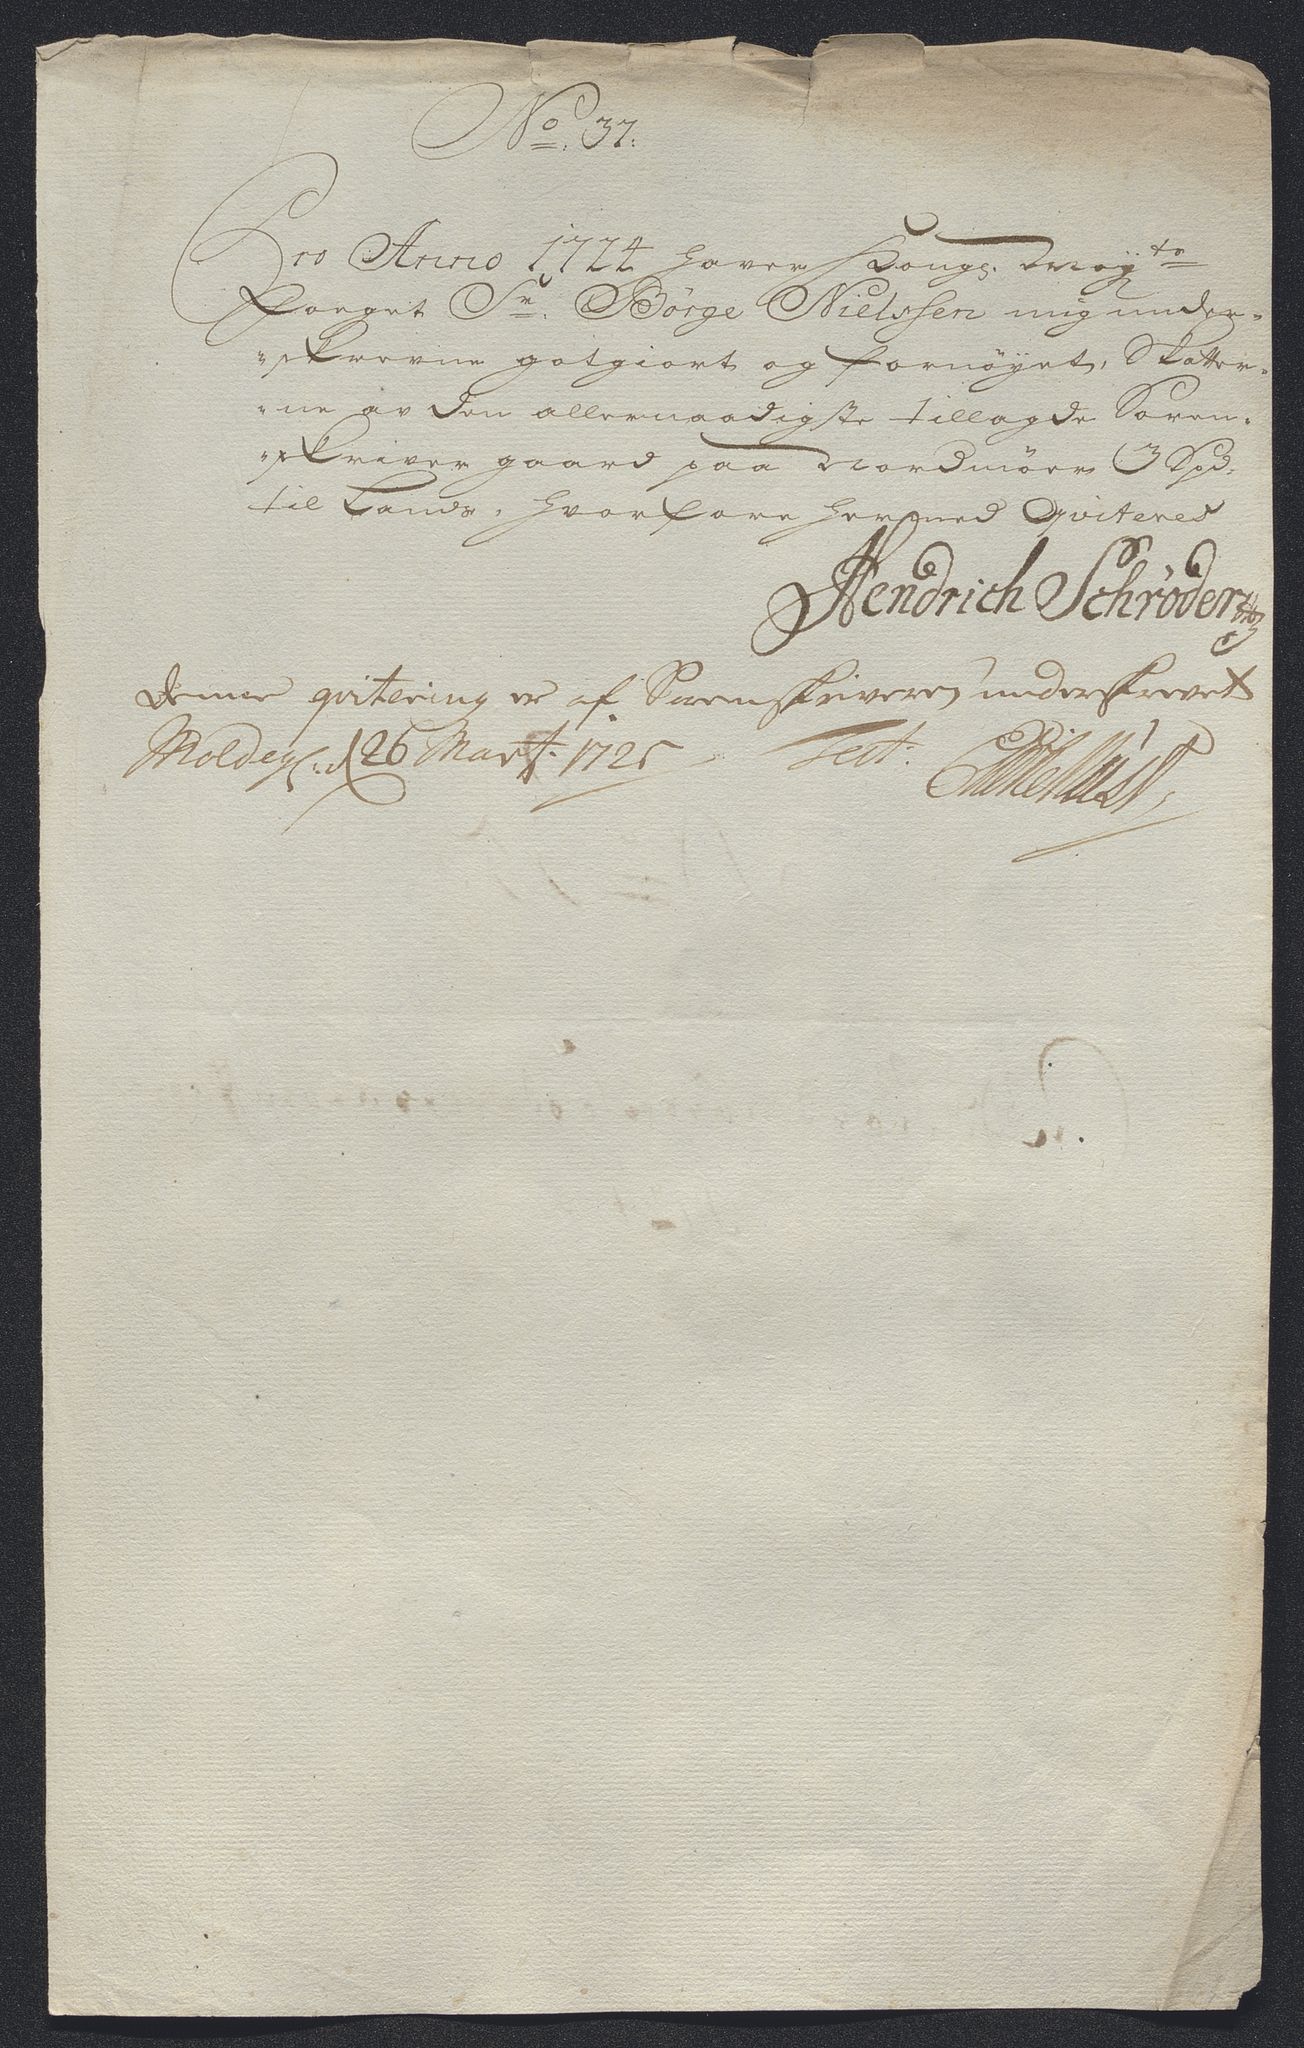 No. 37.
Pro Anno 1724 haver Kongl. Mayts
Foeget Sr. Börge Nielssen mig under-
skrevne gotgiort og fornöyet, Skatter-
ne av den allernaadigste tillagde Soren-
skriver gaard paa Nordmöer 3 Spd.
til Lands, hvorfore hermed qviteres
Hendrich Schröder
Denne qvitering er af Sorenskriveren underskrevet
Molde d 26 Mart. 1725 Test: